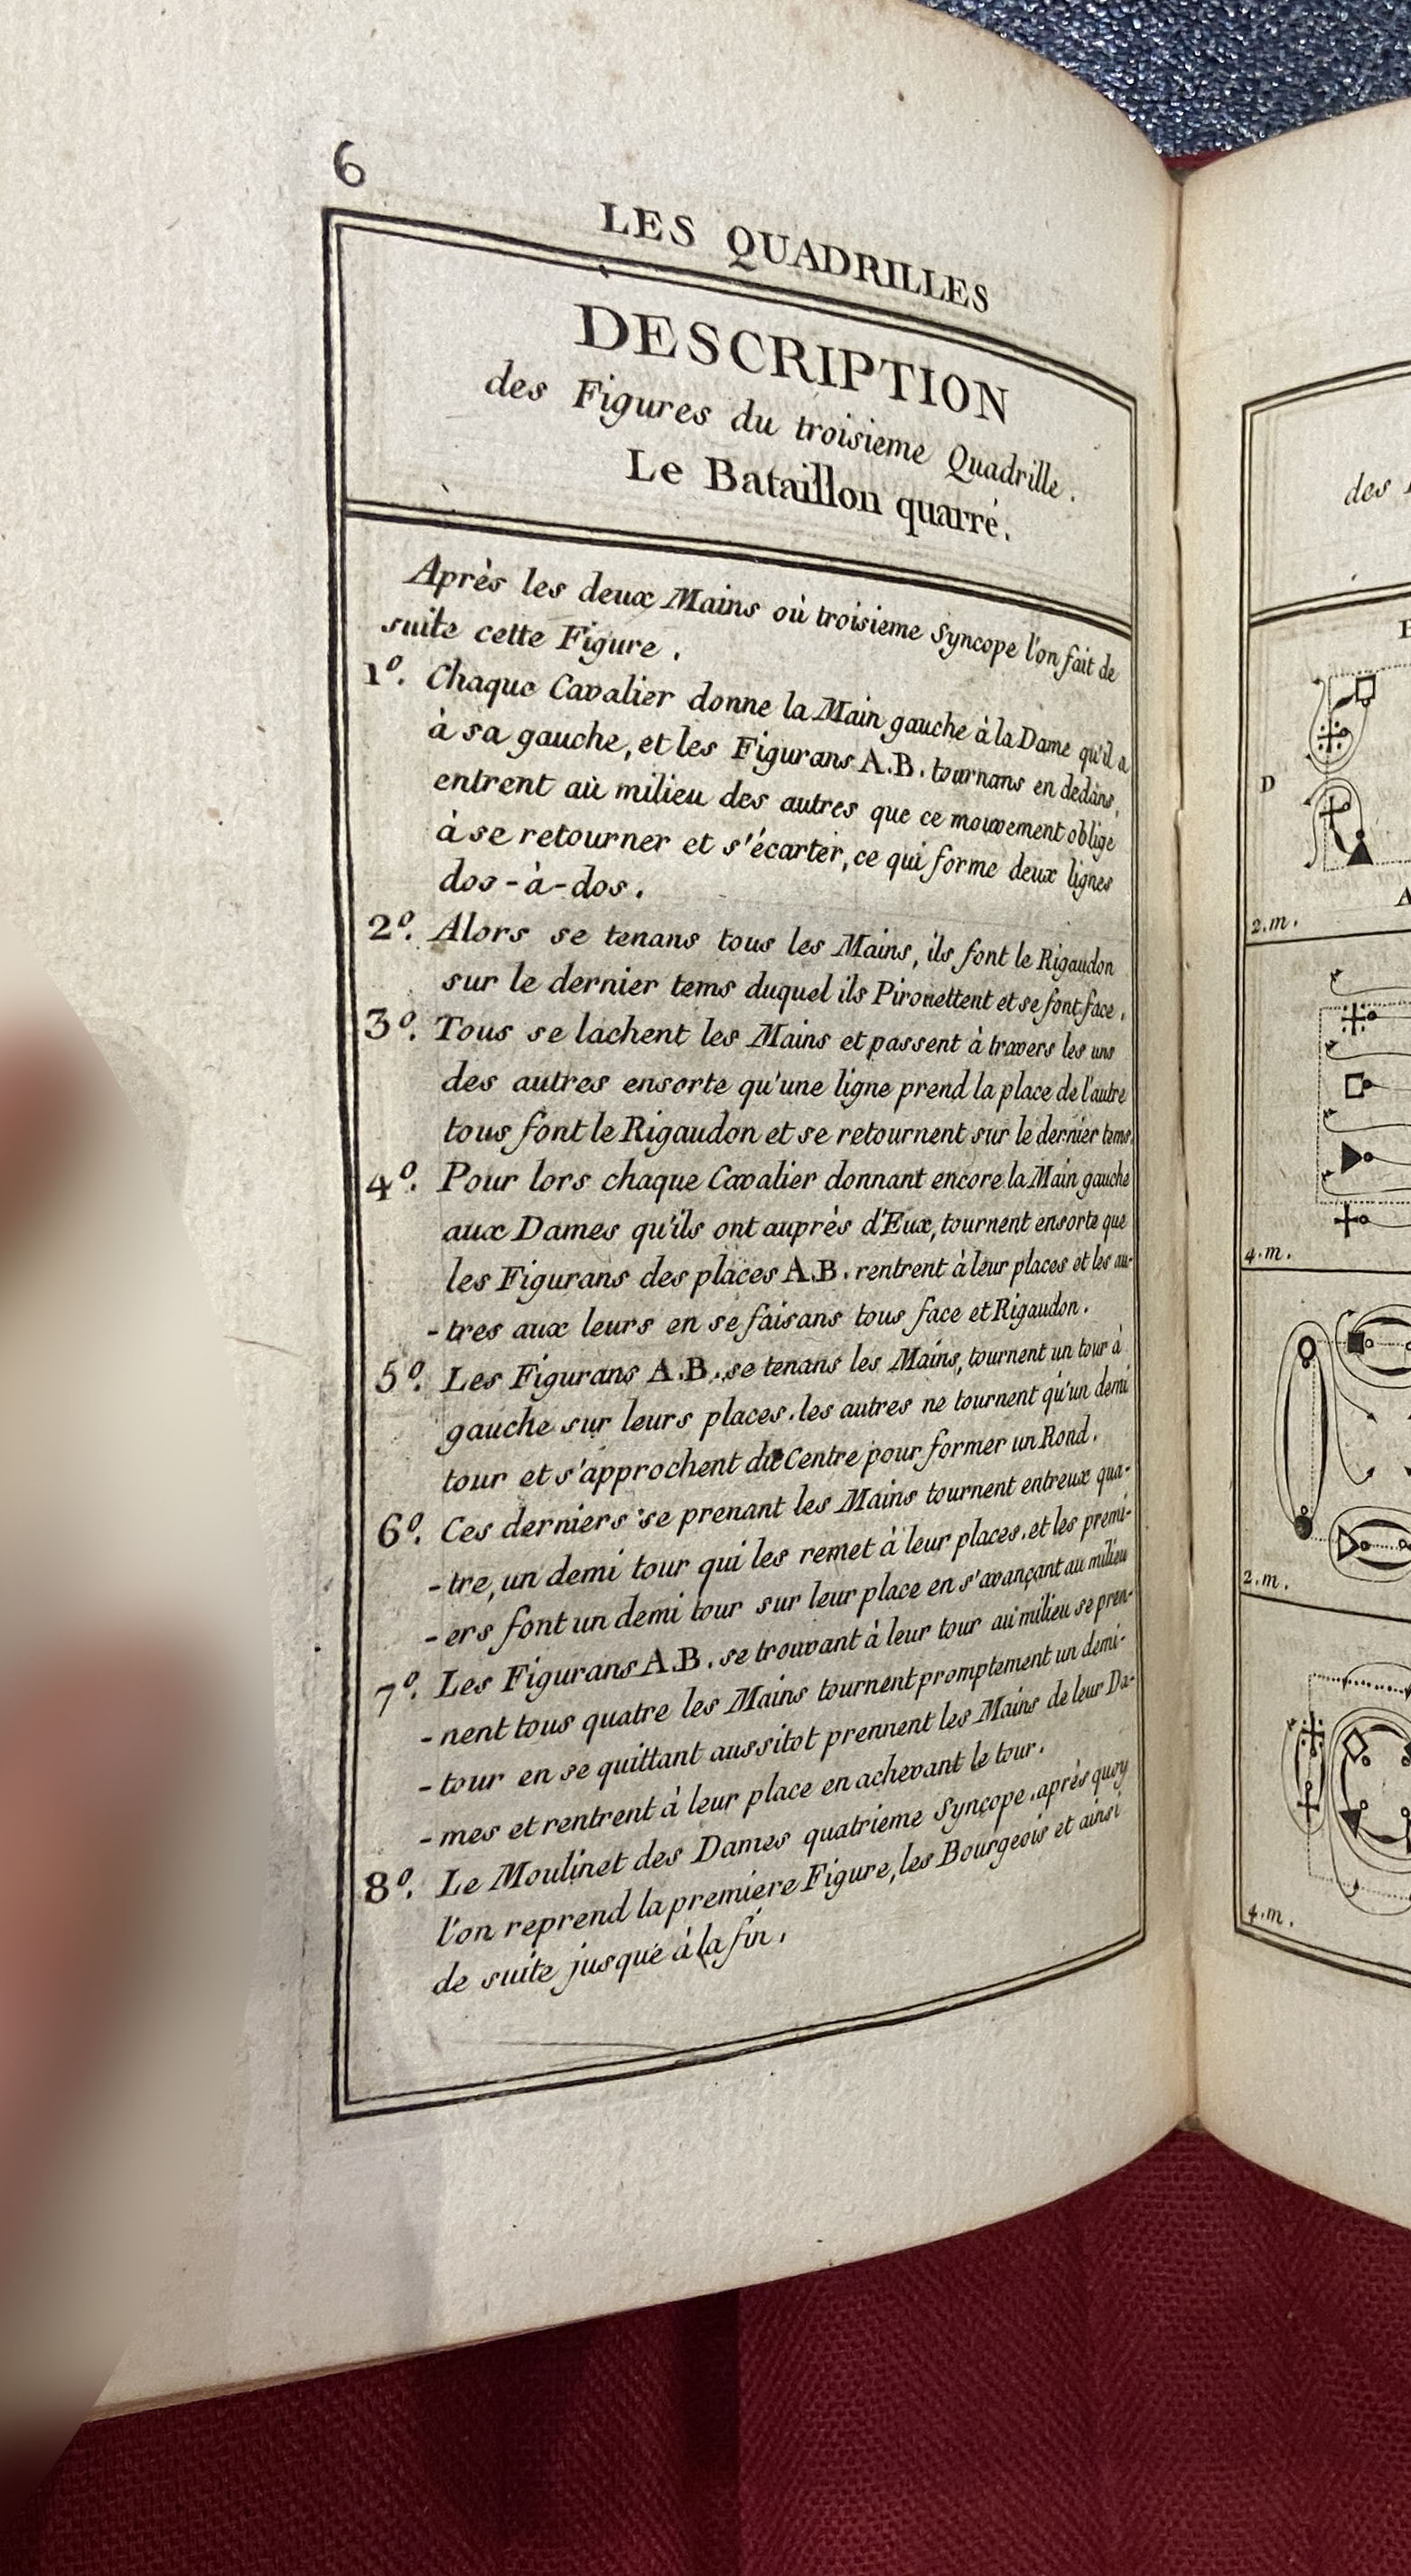 6
LES QUADRILLES
DESCRIPTION
des Figures du troisieme Quadrille.
Le Bataillon quarré.
Après les deux Mains où troisieme Syncope l'on fait de
suite cette Figure.
1º. Chaque Cavalier donne la Main gauche à la Dame qu'il a
à sa gauche, et les Figurans A.B. tournans en dedans,
entrent aù milieu des autres que ce mouvement oblige
à se retourner et s'écarter, ce qui forme deux lignes
dos-à-dos.
2º. Alors se tenans tous les Mains, ils font le Rigaudon
sur le dernier tems duquel ils Pirouettent et se font face.
3º. Tous se lachent les Mains et passent à travers les uns
des autres ensorte qu'une ligne prend la place de l'autre
tous font le Rigaudon et se retournent sur le dernier tems.
4º. Pour lors chaque Cavalier donnant encore la Main gauche
aux Dames qu'ils ont auprès d'Eux, tournent ensorte que
les Figurans des places A.B. rentrent à leur places et les au-
-tres aux leurs en se faisans tous face et Rigaudon.
5º. Les Figurans A.B. se tenans les Mains, tournent un tour à
gauche sur leurs places. les autres ne tournent qu'un demi
tour et s'approchent du Centre pour former un Rond.
6º. Ces derniers se prenant les Mains tournent entreux qua-
-tre, un demi tour qui les remet à leur places. et les premi-
-ers font un demi tour sur leur place en s'avançant au milieu
7º. Les Figurans A.B. se trouvant à leur tour au milieu se pren-
-nent tous quatre les Mains tournent promptement un demi-
-tour en se quittant aussitot prennent les Mains de leur Da-
-mes et rentrent à leur place en achevant le tour.
8º. Le Moulinet des Dames quatrieme Synçope. après quoy
l'on reprend la premiere Figure, les Bourgeois et ainsi
de suite jusque à la fin.
des
D
2.m.
4.m.
2.m.
4.m.